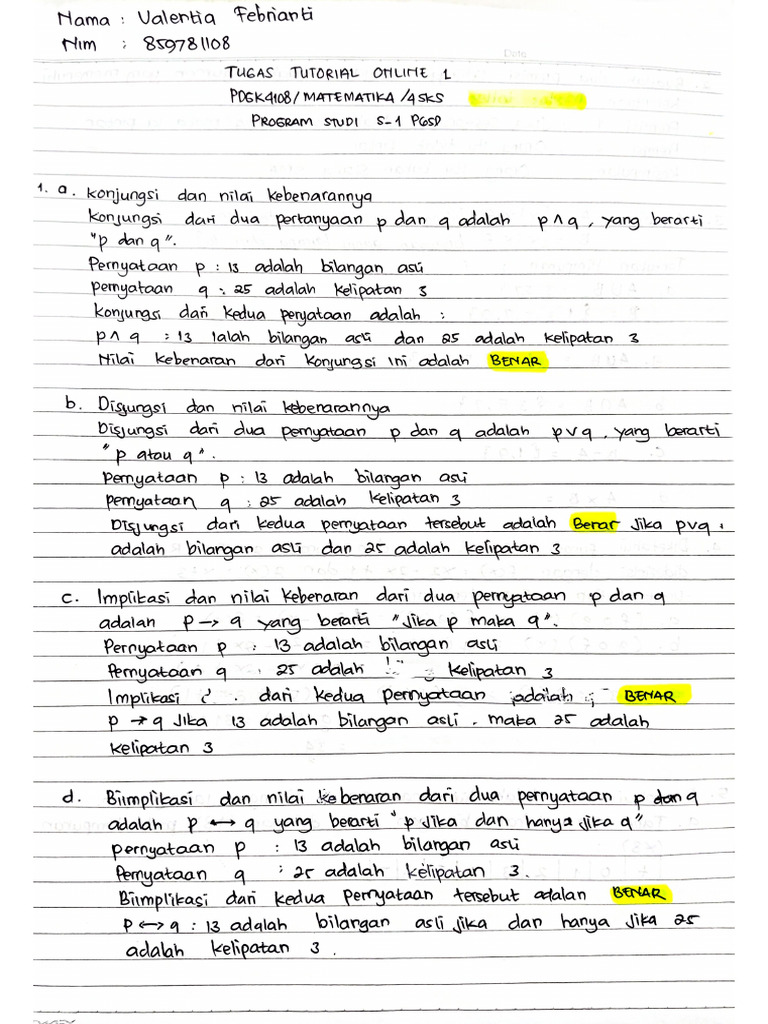 Nama : Valentia Febrianti
Nim : 859781108
Date
TUGAS TUTORIAL ONLINE 1
PDGK4108/MATEMATIKA/4SKS
PROGRAM STUDI S-1 PGSD
1. a. Konjungsi dan nilai kebenarannya
Konjungsi dari dua pertanyaan p dan q adalah p ∧ q, yang berarti
"p dan q".
Pernyataan p : 13 adalah bilangan asli
Pernyataan q : 25 adalah kelipatan 3
Konjungsi dari kedua peryataan adalah :
p ∧ q : 13 ialah bilangan asli dan 25 adalah kelipatan 3
Nilai kebenaran dari konjungsi ini adalah BENAR
b. Disjungsi dan nilai kebenarannya
Disjungsi dari dua pernyataan p dan q adalah p∨q, yang berarti
"p atau q".
Pernyataan p : 13 adalah bilangan asli
pernyataan q : 25 adalah kelipatan 3
Disjungsi dari kedua pernyataan tersebut adalah Benar jika p∨q,
adalah bilangan asli dan 25 adalah kelipatan 3
c. Implikasi dan nilai keberaran dari dua pernyataan p dan q
adalah p → q yang berarti "jika p maka q".
Pernyataan p : 13 adalah bilangan asli
Pernyataan q : 25 adalah kelipatan 3
Implikasi dari kedua pernyataan adalah BENAR
p → q Jika 13 adalah bilangan asli, maka 25 adalah
kelipatan 3
d. Biimplikasi dan nilai kebenaran dari dua pernyataan p dan q
adalah p ↔ q yang berarti "p jika dan hanya jika q"
pernyataan p : 13 adalah bilangan asli
Pernyataan q : 25 adalah kelipatan 3.
Biimplikasi dari kedua pernyataan tersebut adalah BENAR
p ↔ q : 13 adalah bilangan asli jika dan hanya jika 25
adalah kelipatan 3.